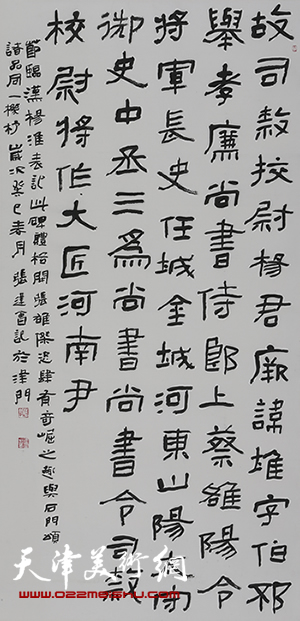 故司隸校尉楊君厥諱淮字伯邳
舉孝廉尚書侍郎上蔡雒陽令
將軍長史任城金城河東山陽太守
御史中丞三爲尚書尚書令司隸
校尉將作大匠河南尹
節臨漢楊淮表記此碑體格開張雄傑恣肆有奇崛之趣與石門頌
諸品同一機杼歲次癸巳春月張建會記於津門
天津美術網
www.022meishu.com